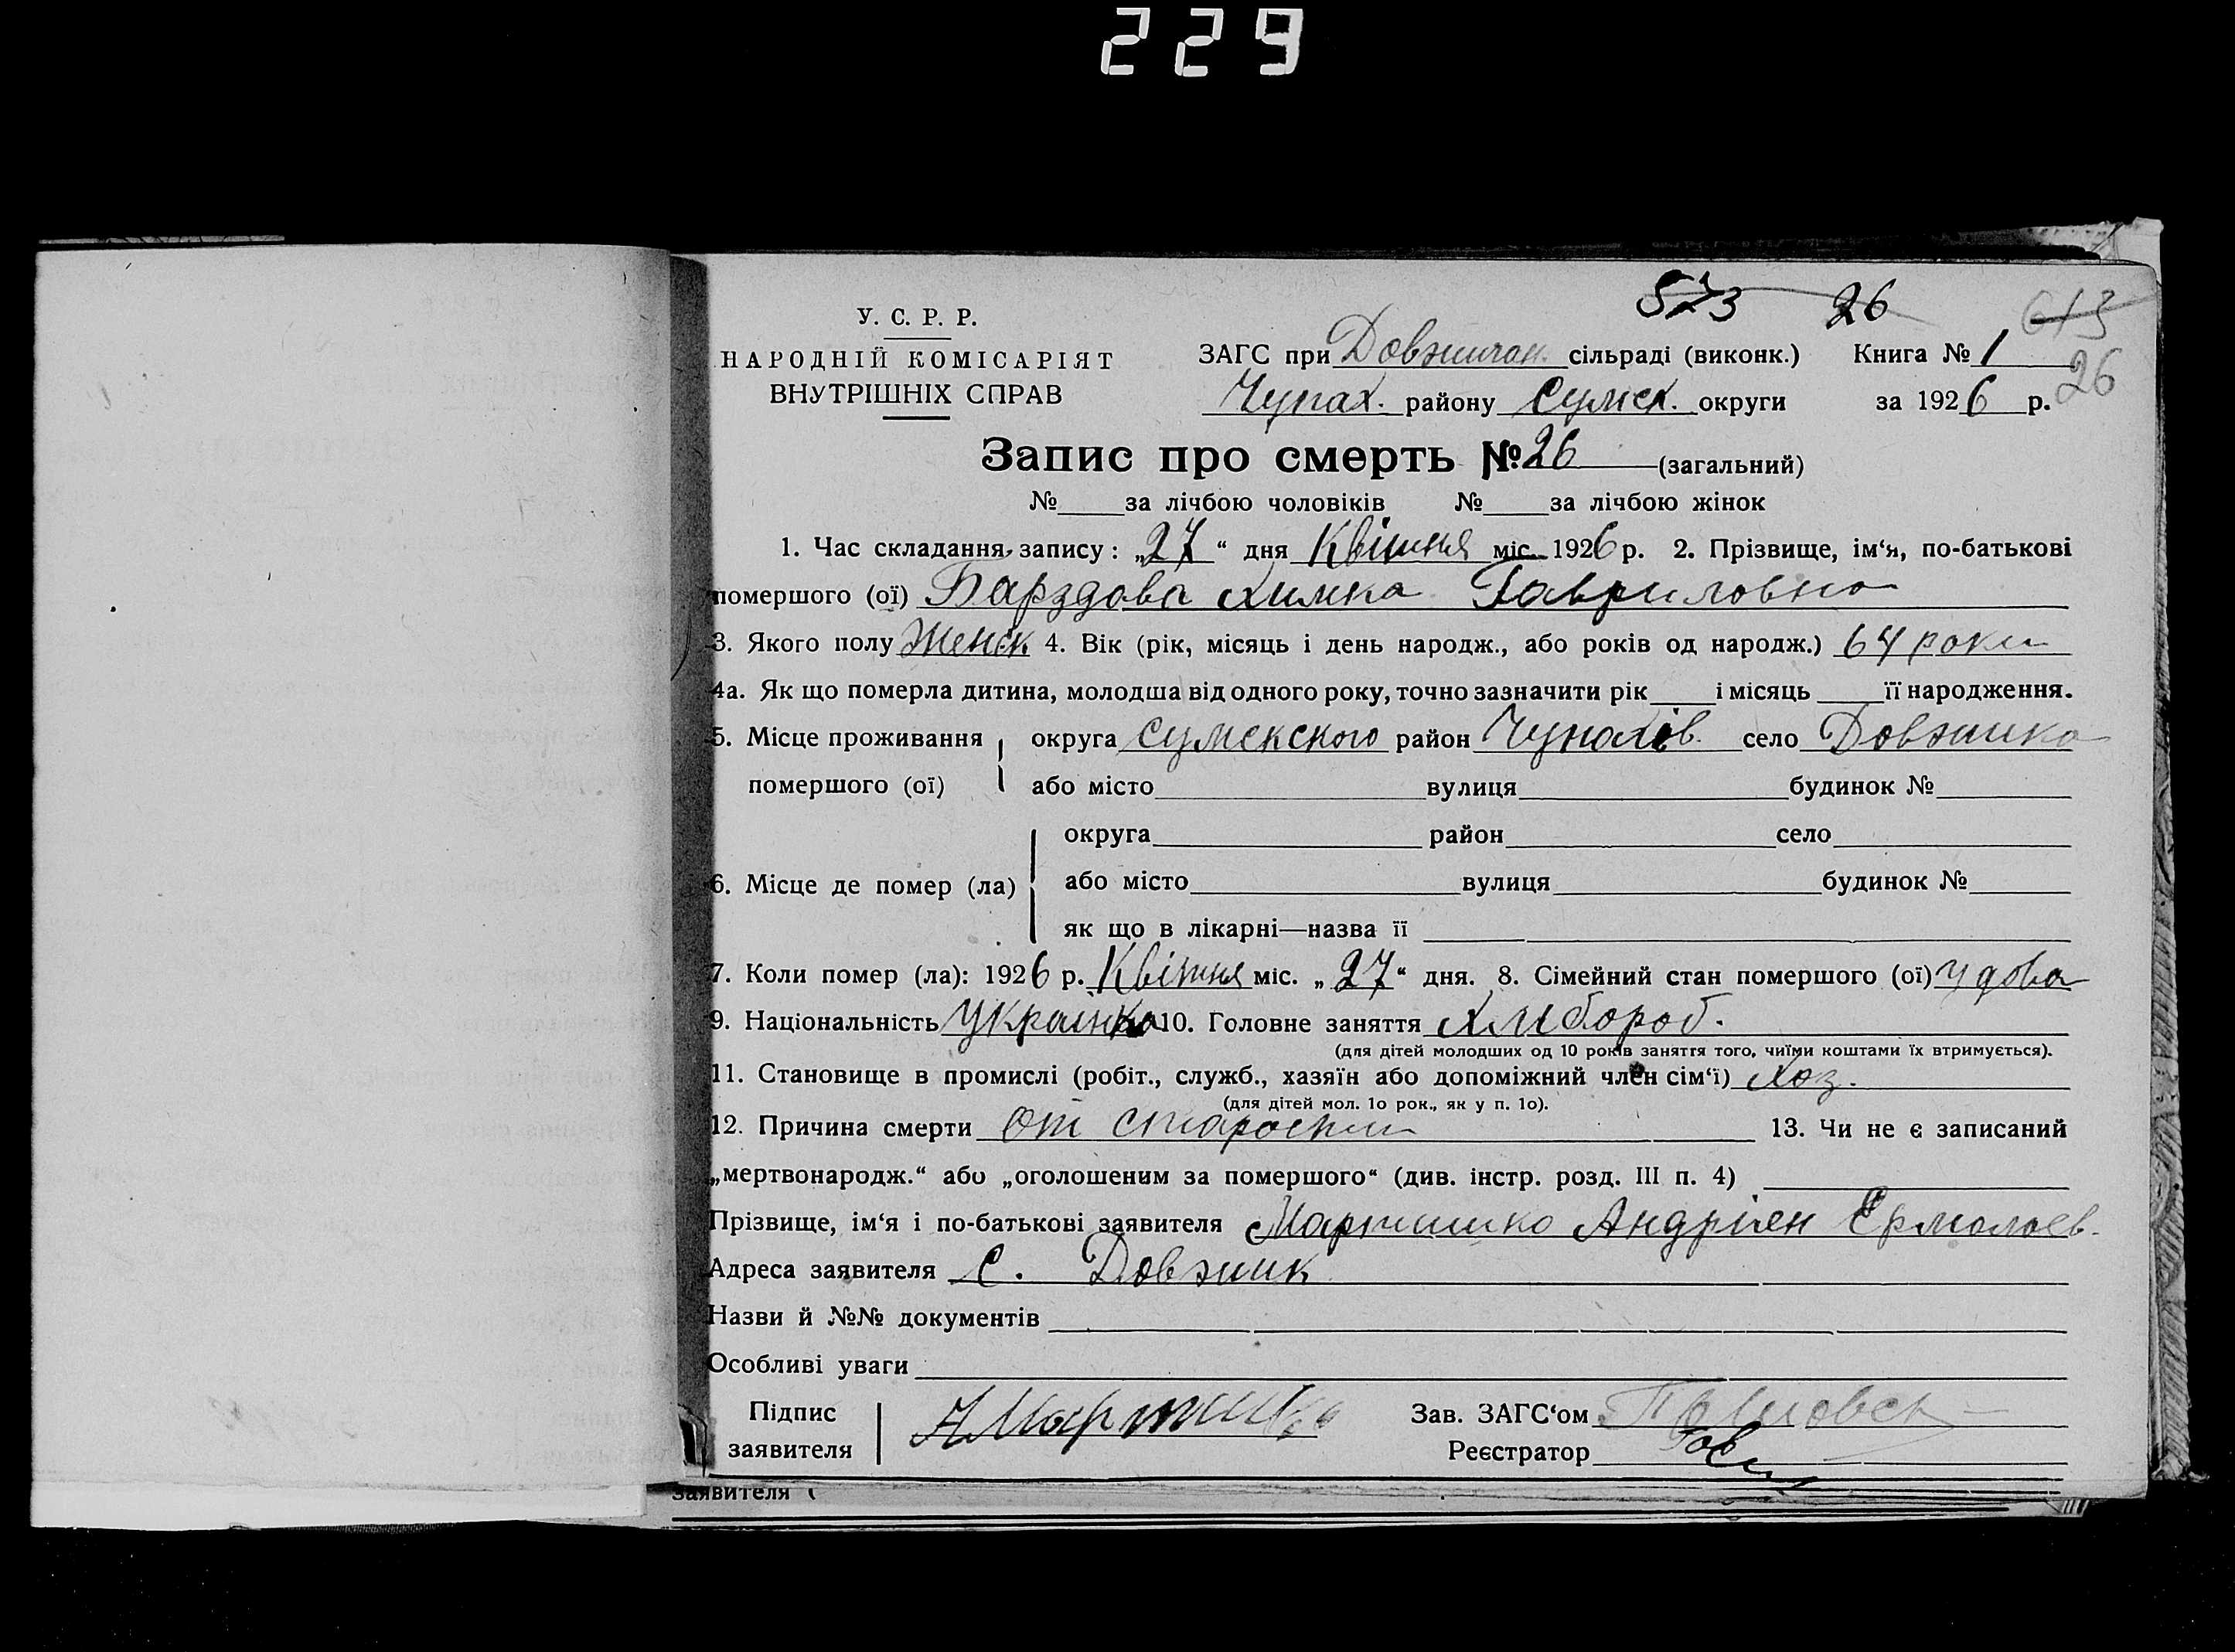 229
573 26 613
У. С. Р. Р.
НАРОДНІЙ КОМІСАРІЯТ
ВНУТРІШНІХ СПРАВ
ЗАГС при Довжичан. сільраді (виконк.) Книга № 1
26
Чупах. району Сумск. округи за 1926 р.
Запис про смерть № 26 (загальний)
№ за лічбою чоловіків № за лічбою жінок
1. Час складання запису: „27“ дня Квітня міс. 1926 р. 2. Прізвище, ім‘я, по-батькові
помершого (ої) Барздова Химка Гавриловна
3. Якого полу Женск 4. Вік (рік, місяць і день народж., або років од народж.) 64 роки
4а. Як що померла дитина, молодша від одного року, точно зазначити рік і місяць її народження.
5. Місце проживання округа Сумскского район Чупахів. село Довжика
помершого (ої) або місто вулиця будинок №
округа район село
6. Місце де помер (ла) або місто вулиця будинок №
як що в лікарні—назва її
7. Коли помер (ла): 1926 р. Квітня міс. „27“ дня. 8. Сімейний стан помершого (ої) удова
9. Національність Украінка 10. Головне заняття Хлібороб.
(для дітей молодших од 10 років заняття того, чиїми коштами їх втримується).
11. Становище в промислі (робіт., служб., хазяїн або допоміжний член сім‘ї) Хоз.
(для дітей мол. 1о рок., як у п. 1о).
12. Причина смерти от старости 13. Чи не є записаний
„мертвонародж.“ або „оголошеним за помершого“ (див. інстр. розд. III п. 4)
Прізвище, ім‘я і по-батькові заявителя Мартишко Андріен Ермолаев.
Адреса заявителя с. Довжик
Назви й №№ документів
Особливі уваги
Підпис Зав. ЗАГС‘ом
заявителя Реєстратор
АМартишко
заявителя